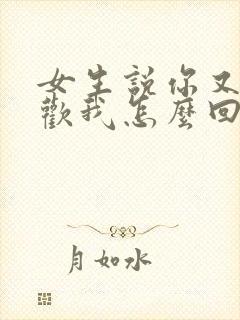 女生説你又
歡我怎麼回
月如水